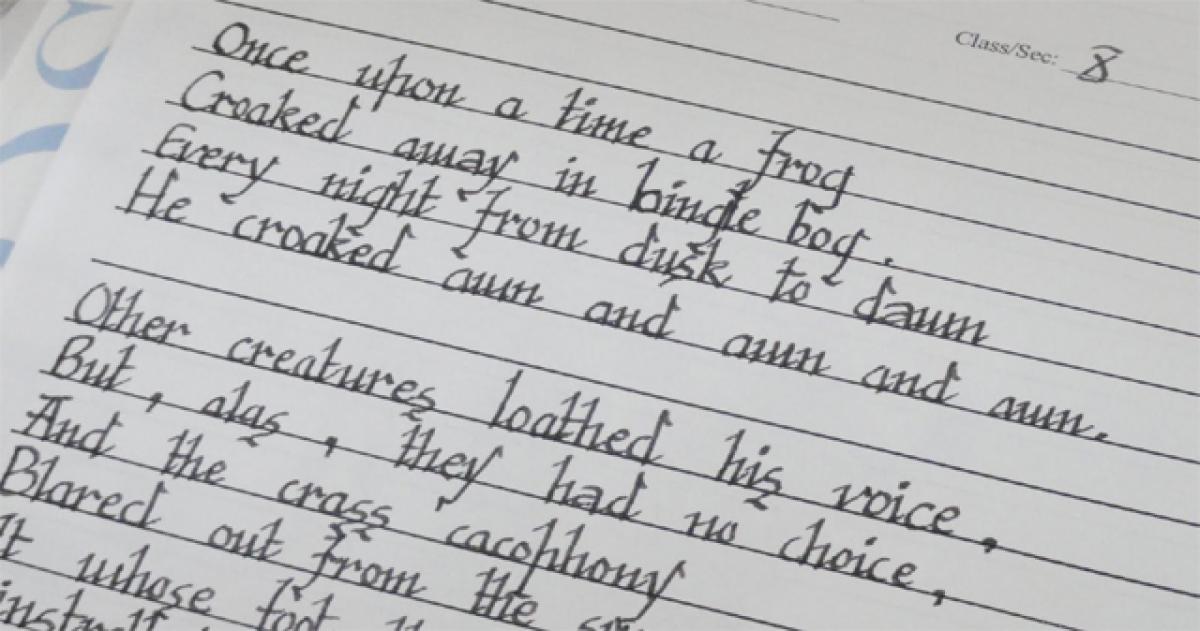 Class/Sec: 8
Once upon a time a frog
Croaked away in bingle bog.
Every night from dusk to dawn
He croaked awn and awn and awn.
Other creatures loathed his voice,
But, alas, they had no choice,
And the crass cacophony
Blared out from the
At whose foot